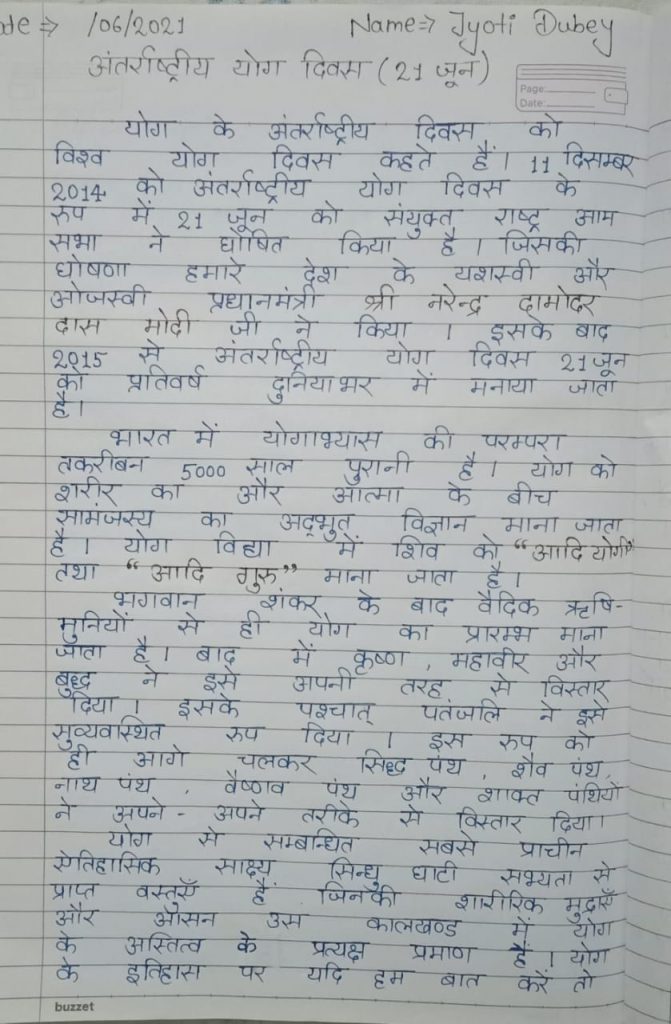 de ⇒ /06/2021 Name ⇒ Jyoti Dubey
अंतर्राष्ट्रीय योग दिवस (21 जून)
Page:
Date:
योग के अंतर्राष्ट्रीय दिवस को
विश्व योग दिवस कहते हैं। 11 दिसम्बर
2014 को अंतर्राष्ट्रीय योग दिवस के
रुप में 21 जून को संयुक्त राष्ट्र आम
सभा ने घोषित किया है। जिसकी
घोषणा हमारे देश के यशस्वी और
ओजस्वी प्रधानमंत्री श्री नरेन्द्र दामोदर
दास मोदी जी ने किया। इसके बाद
2015 से अंतर्राष्ट्रीय योग दिवस 21 जून
को प्रतिवर्ष दुनियाभर में मनाया जाता
है।
भारत में योगाभ्यास की परम्परा
तकरीबन 5000 साल पुरानी है। योग को
शरीर का और आत्मा के बीच
सामंजस्य का अद्भुत विज्ञान माना जाता
है। योग विद्या में शिव को "आदि योगी"
तथा "आदि गुरु" माना जाता है।
भगवान शंकर के बाद वैदिक ऋषि-
मुनियों से ही योग का प्रारम्भ माना
जाता है। बाद में कृष्ण, महावीर और
बुद्ध ने इसे अपनी तरह से विस्तार
दिया। इसके पश्चात् पतंजलि ने इसे
सुव्यवस्थित रुप दिया। इस रुप को
ही आगे चलकर सिद्ध पंथ, शैव पंथ,
नाथ पंथ, वैष्णव पंथ और शाक्त पंथियों
ने अपने - अपने तरीके से विस्तार दिया।
योग से सम्बन्धित सबसे प्राचीन
ऐतिहासिक साक्ष्य सिन्धु घाटी सभ्यता से
प्राप्त वस्तुएँ हैं जिनकी शारीरिक मुद्राएँ
और आसन उस कालखण्ड में योग
के अस्तित्व के प्रत्यक्ष प्रमाण हैं। योग
के इतिहास पर यदि हम बात करें तो
buzzet